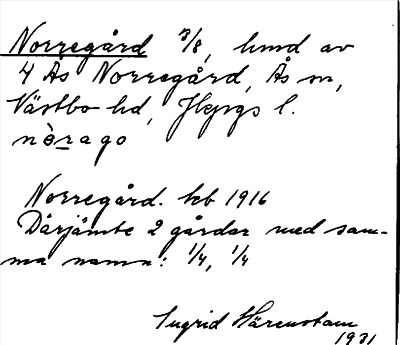 Norregård 3/8, hmd av
4 Ås Norregård, Ås sn,
Västbo hd, Jkpgs l.
nò̱rago
Norregård. kb 1916
Därjämte 2 gårdar med sam-
ma namn: 1/4, 1/4
Ingrid Härenstam
1931